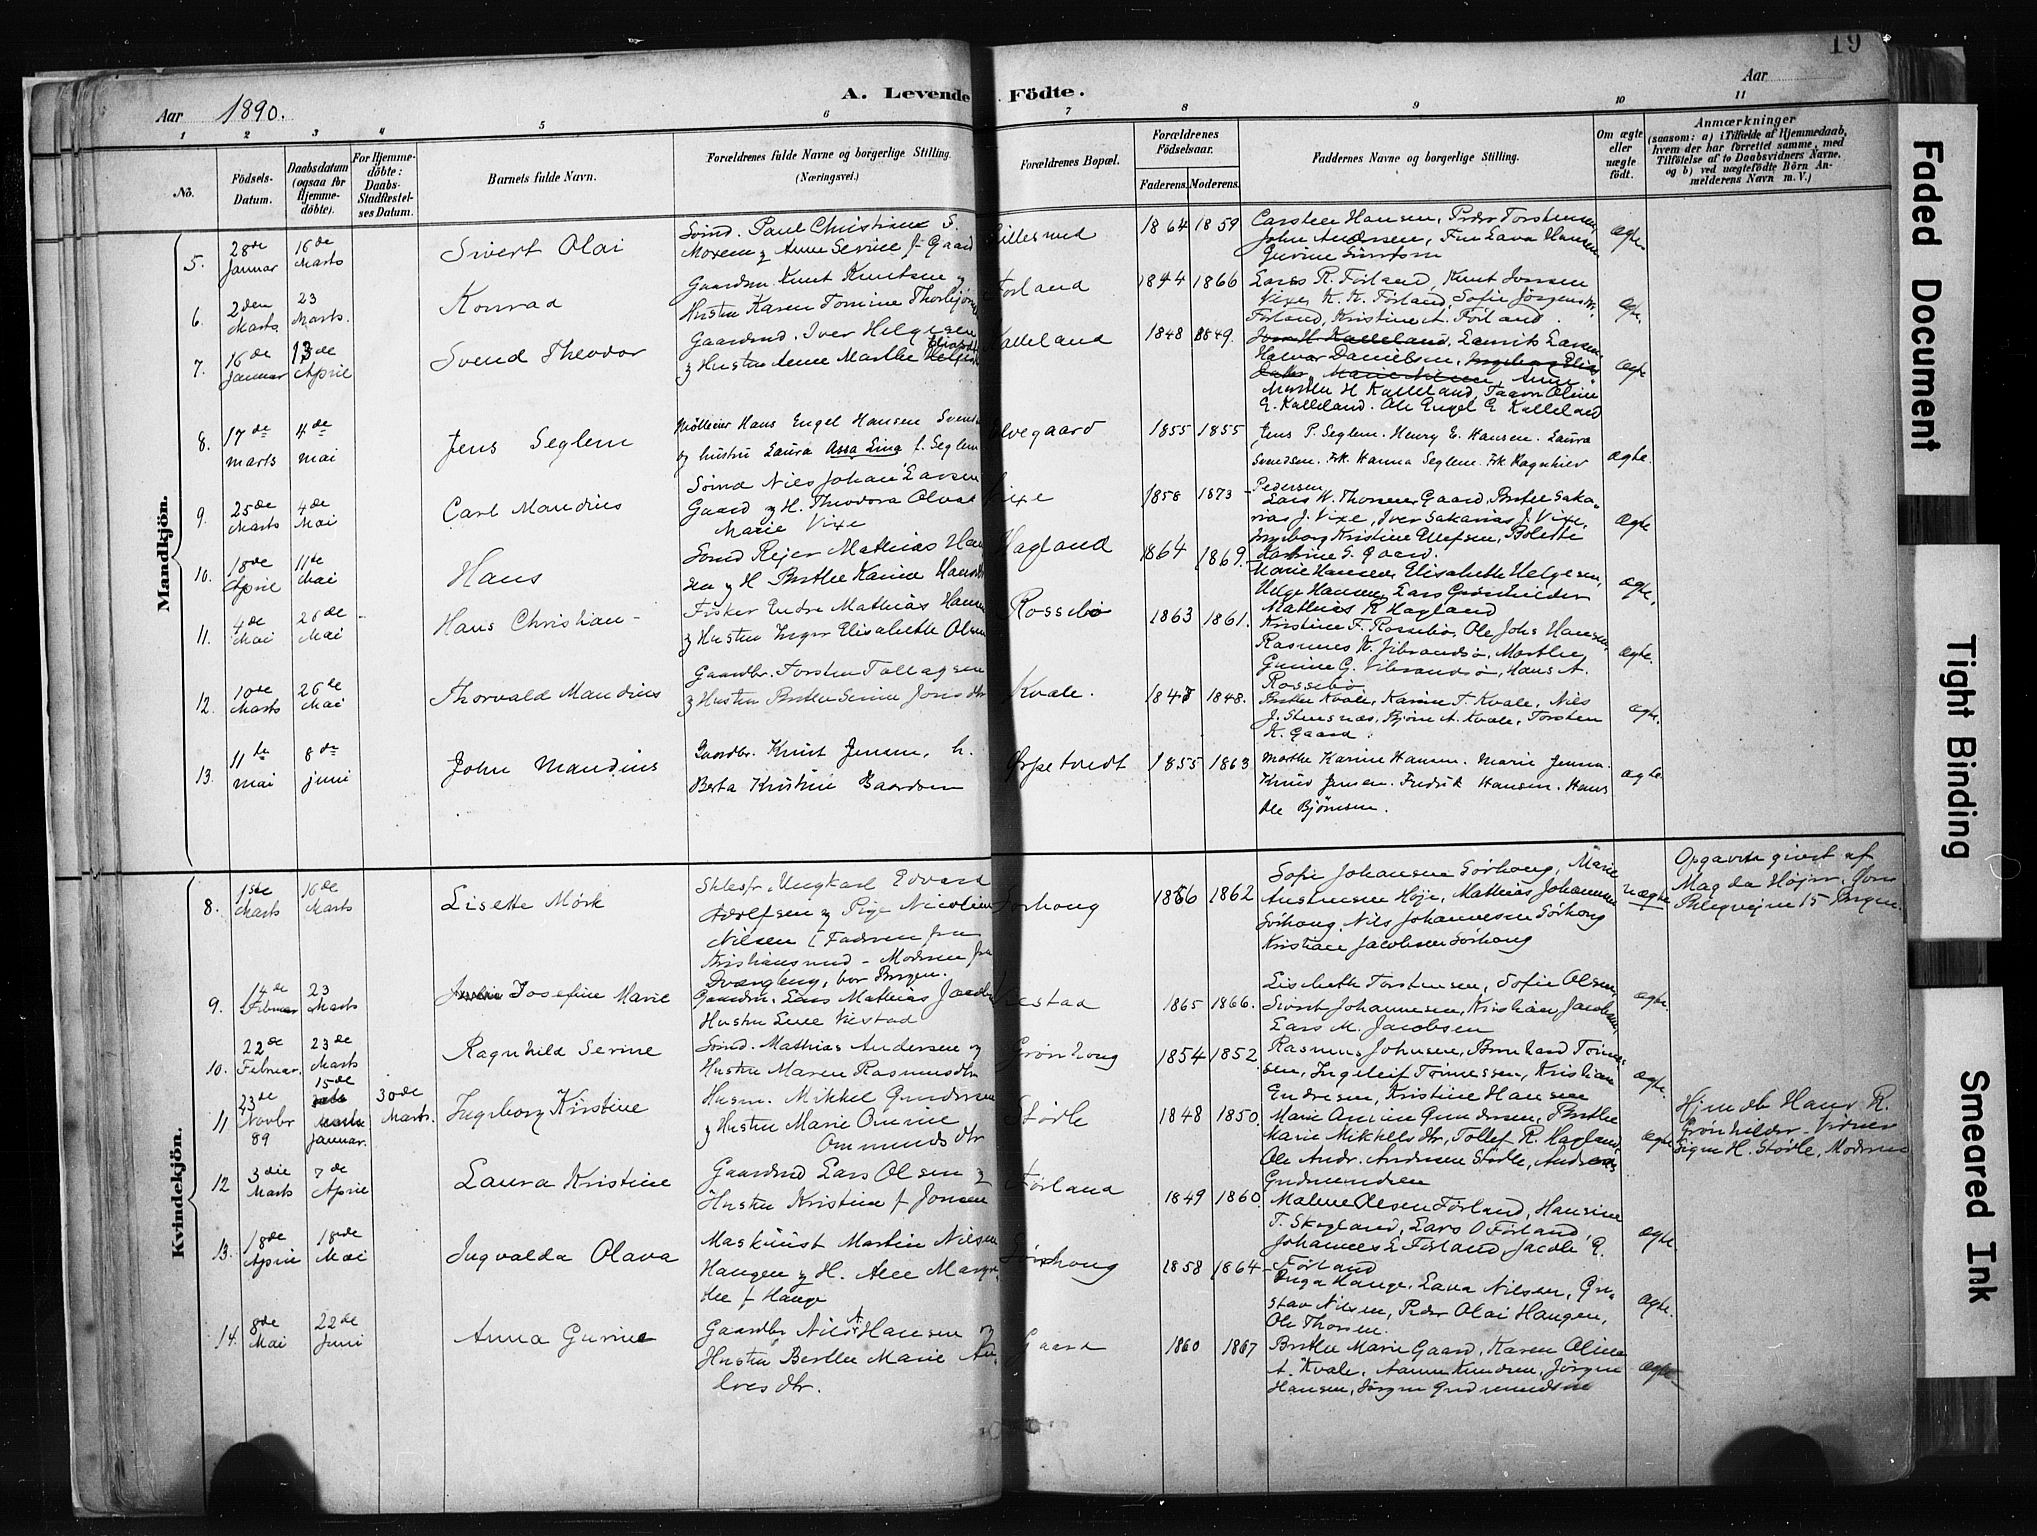 19
A. Levende Födte.
Aar 1890.
Aar
1 2 3 4 5 6 7 8 9 10 11
No.
Födsels-Datum.
Daabsdatum (ogsaa for Hjemmedöbte).
For Hjemmedöbte: Daabs-Stadfæstelses Datum.
Barnets fulde Navn.
Forældrenes fulde Navne og borgerlige Stilling. (Næringsvei.)
Forældrenes Bopæl.
Forældrenes Födselsaar.
Faderens. Moderens.
Faddernes Navne og borgerlige Stilling.
Om ægte eller uægte födt.
Anmærkninger
(saasom: a) i Tilfælde af Hjemmedaab, hvem der har forrettet samme, med Tilföielse af to Daabsvidners Navne. og b) ved uægtefödte Börn Anmelderens Navn m. V.)
Mandkjön.
5. 28de Januar 16de Marts Sivert Olai
Sømd. Paul Christian S.
Moxem og Anne Serine f. Gaard
Lillesund 1864 1859
Carsten Hansen, Peder Torstensen,
John Andersen, Fru Lava Hansen
Gurine Simonsen
ægte
6. 2den Marts 23 Marts. Konrad
Gaardm. Knut Knutsen og
Hustru Karen Tomine Thorbjørns
Førland 1844 1866
Lars K. Førland, Knut Jonsen
Vixe, K. K. Førland, Sofie Jørgensdtr,
Førland, Kristine A. Førland.
ægte.
7. 16de Januar 13de April Svend Theodor
Gaardmd. Iver Helgesen
og Hustru Anne Marthe Eliasdtr
Kalleland 1848 1849.
Jon H. Kalleland, Lauritz Larsen
Halvor Danielsen, Ingeborg Elias
datter, Marie Nilsen, Anne
Marthe H Kalleland, Taaran Oline
E. Kalleland. Ole Engel E Kalleland
ægte
8. 17de marts 4de mai Jens Seglem
Møller Hans Engel Hansen Svends
og hustru Laura Assa Lina f. Seglem
Elvegaard 1855 1855
Jens P. Seglem. Henry E. Hansen. Laura
Svendsen. Frk. Hanna Seglem. Frk Ragnhild
Pedersen
ægte.
9. 25de Marts 4de Mai Carl Mandius
Sømd Nils Johan Larsen
Gaard og H. Theodora Olvae
Marie Vixe
Vixe 1858 1873
Lars W. Thorsen Gaard, Berthe Saka-
rias J. Vixe, Iver Sakarias J. Vixe,
Ingeborg Kristine Ellefsen, Bolette
Karine S. Gaard.
Ægte
10. 18de April 11te Mai Hans
Sømd Rejer Mathias Han
sen og H Berthe Karine Hansdtr
Hagland 1864 1869.
Marie Hansen, Elisabeth Helgesen,
Helge Hansen, Lars Grønhilder
Mathias R Hagland
ægte.
11. 4de Mai 26de Mai Hans Christian
Fisker Endre Mathias Hansen
og Hustru Inger Elisabeth Olsen
Rossebø 1863 1861.
Kristine F. Rossebø, Ole Johs Hansen,
Rasmus K. Vibrandsø, Marthe
Gurine G. Vibrandsø, Hans A.
Rossebø
ægte.
12. 10de Marts 26de Mai Thorvald Mandius
Gaardbr. Torsten Tollagsen
og Hustru Berthe Serine Jonsdtr
Kvale. 1847 1848.
Berthe Kvale, Karine T. Kvale, Nils
J. Stensnæs, Bjørn A. Kvale, Torsten
K. Gaard.
ægte.
13. 11te mai 8de juni John Mandius
Gaardbr. Knut Jensen, h.
Berta Kristine Baardsen
Ørpetvedt 1855 1863
Marthe Karine Hansen. Marie Jensen.
Knud Jensen. Fredrik Hansen. Hans
Ole Bjørnsen.
ægte
Kvindekjön.
8. 1ste Marts 16de Marts Lisette Mørk
Skibsfr. Ungkarl Edvard
Adolfsen og Pige Nicoline
Nilsen (Faderen fra
Kristiansund - Moderen fra
Dvergberg, bor Bergen.
Sørhoug 1866 1862
Sofie Johansen Sørhoug, Marie
Anstensen Høje, Mathias Johannsen
Sørhoug, Nils Johannesen Sørhoug
Kristian Jacobsen Sørhoug
uægte
Opgaven givet af
Magda Højem, Øvre
Blegvejen 15 Bergen.
9. 14de Februar 23 Marts Josefine Marie
Gaardm. Lars Mathias Jacobs
Hustru Lene Vestad
Vestad 1865 1866.
Lisbeth Torstensen, Sofie Olsen,
Sivert Johannesen, Kristian Jacobsen,
Lars M. Jacobsen
ægte.
10. 22de Februar. 23de Marts Ragnhild Serine
Sømd. Mathias Andersen og
Hustru Maren Rasmusdtr
Grønhoug 1854 1852
Rasmus Johnsen, Bernhard Tønnes
sen, Ingeleif Tønnessen, Kristian
Endresen, Kristine Hansen
ægte.
11 23de Novbr 89 15de Januar. 30de Marts. Ingeborg Kristine
Husm. Mikkel Gundersen
og Hustru Marie Omine
Ommundsdtr
Størle 1848 1850.
Marie Amine Gundersen, Berthe
Marie Mikkelsdtr, Tollef R. Hagland,
Ole Andr. Andersen Størle, Andreas
Gudmundsen
ægte
Hjemdbt Hans R.
Grønhilder - Vidner
Signe H. Størle, Moderen
12 3die Marts 7de April Laura Kristine
Gaardmd Lars Olsen og
Hustru Kristine f Jonsen
Førland 1849 1860.
Malene Olsen Førland, Hansine
T. Skogland, Lars O Førland,
Johannes L Førland, Jacob G.
Førland
ægte.
13. 18de April 18de Mai Ingvalda Olava
Maskinist Martin Nilsen
Haugen og H. Ane Margre-
the f Hauge
Sørhoug 1858 1864
Inga Hauge, Lava Nilsen, Gu-
stav Nilsen, Peder Olai Haugen,
Ole Thorsen.
ægte.
14. 8de Mai 22de Juni Anna Gurine
Gaardbr Nils A Hansen og
Hustru Berthe Marie An-
dresdtr.
Gaard 1860 1867
Berthe Marie Gaard, Karen Oline
A. Kvale, Aanen Knudsen, Jørgen
Hansen, Jørgen Gudmundsen
ægte
Faded Document
Tight Binding
Smeared Ink